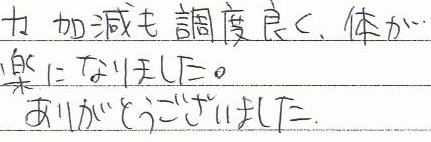 力加減も調度良く、体が
楽になりました。
ありがとうございました.